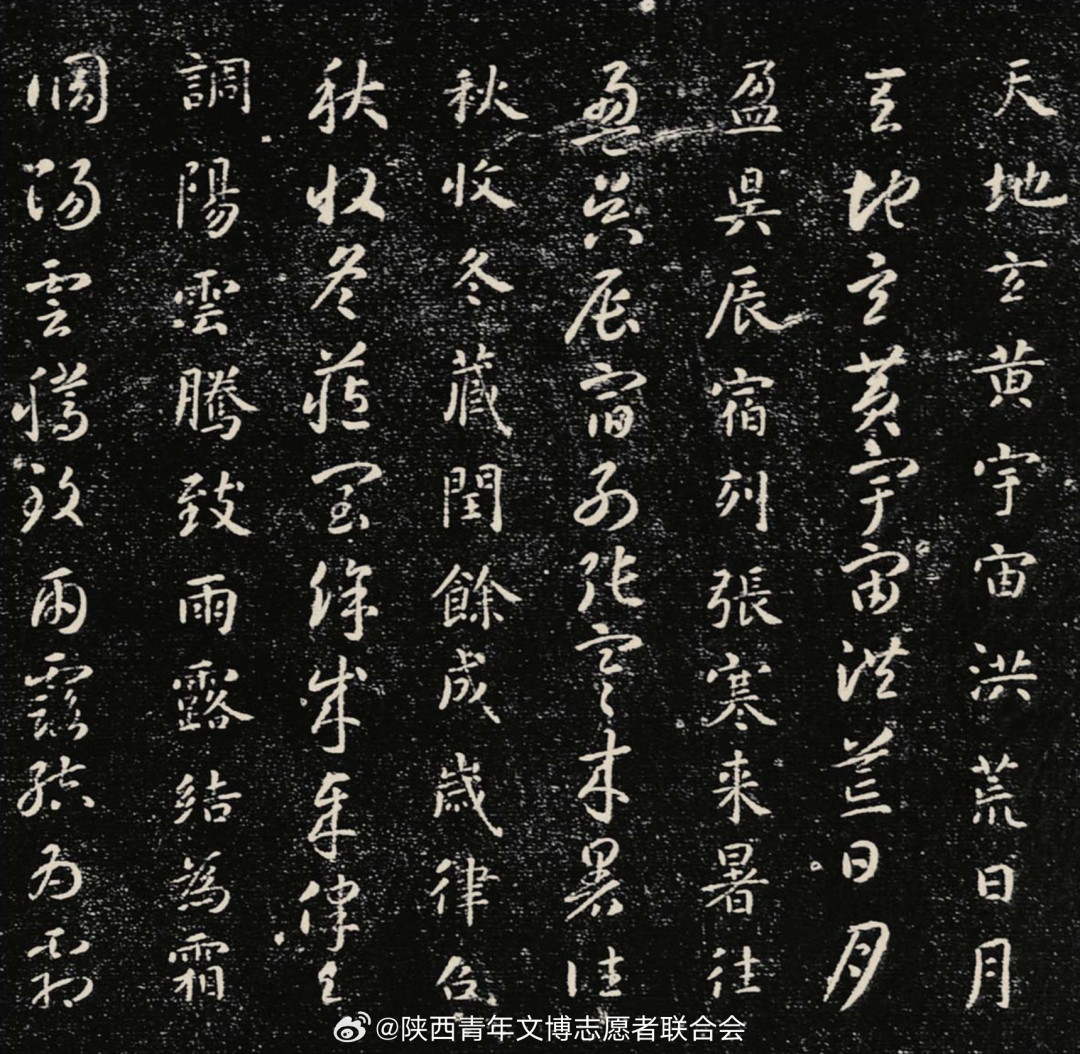 天地玄黄宇宙洪荒日月
天地玄黄宇宙洪荒日月
盈昃辰宿列張寒来暑往
盈昃辰宿列張寒来暑往
秋收冬藏閏餘成歲律呂
秋收冬藏閏餘成歲律呂
調陽雲騰致雨露結為霜
調陽雲騰致雨露結為霜
@陕西青年文博志愿者联合会